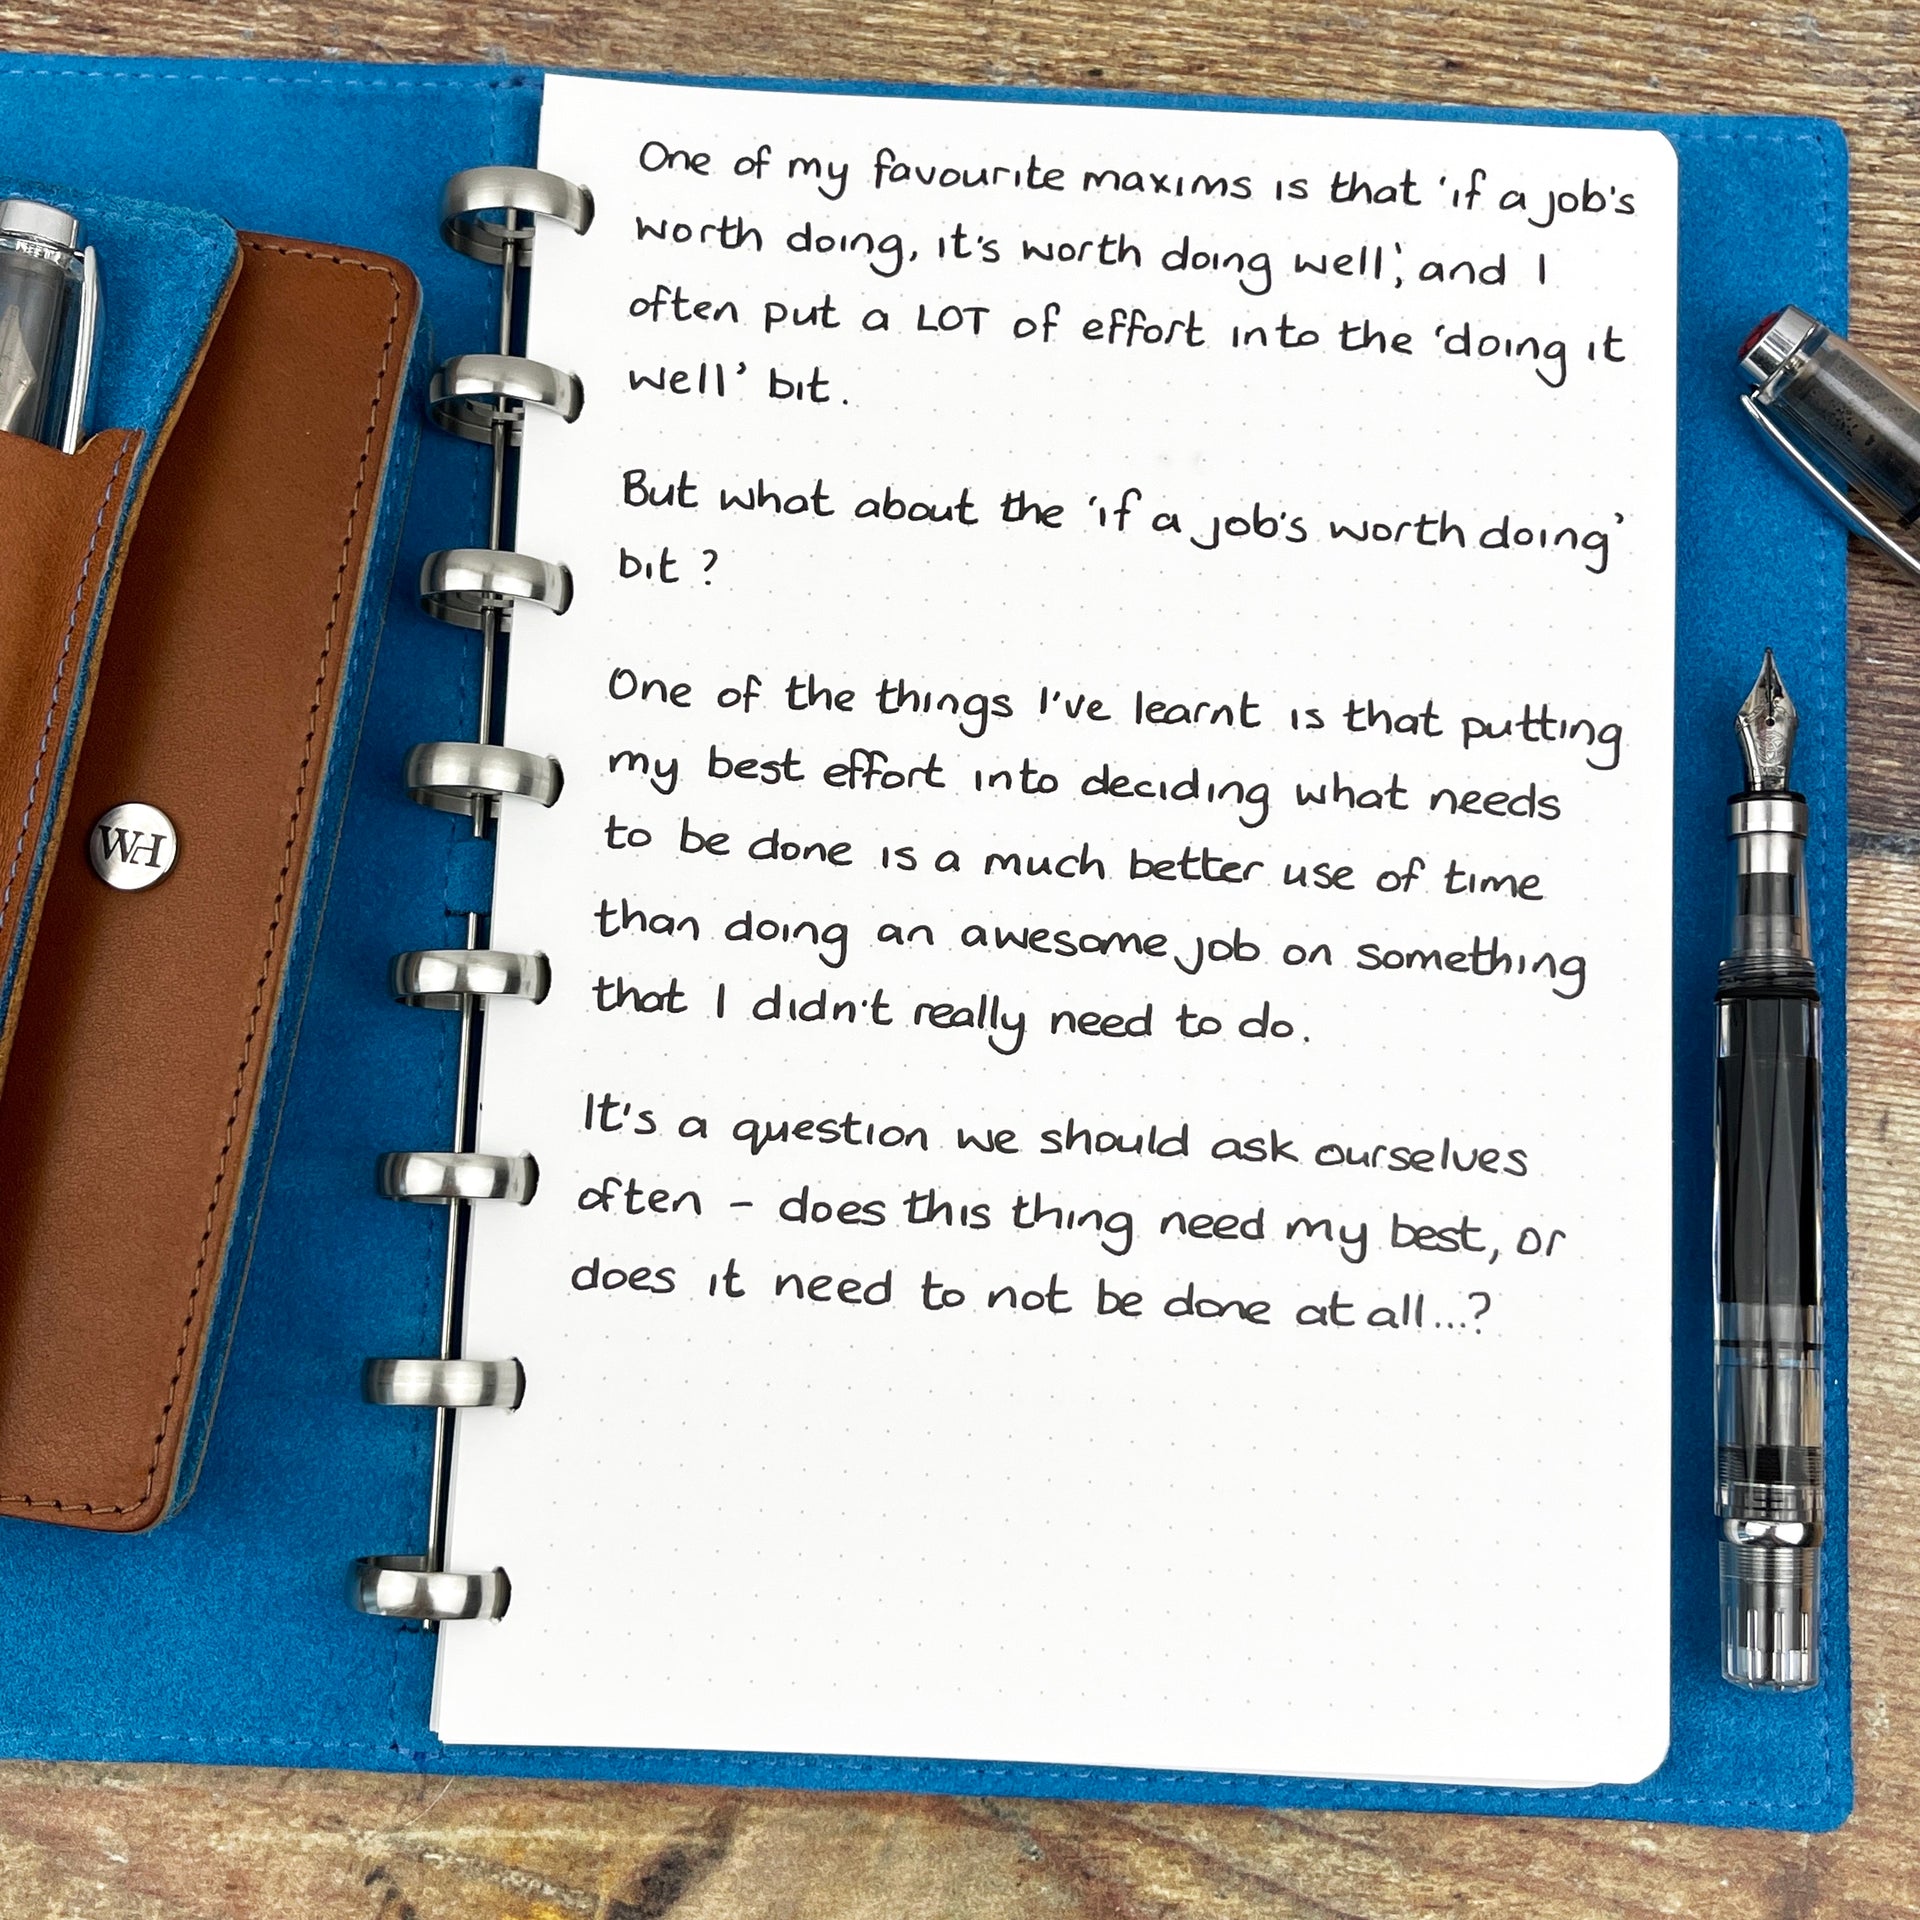 One of my favourite maxims is that 'if a job's
worth doing, it's worth doing well', and I
often put a LOT of effort into the 'doing it
well' bit.
But what about the 'if a job's worth doing'
bit?
One of the things I've learnt is that putting
my best effort into deciding what needs
to be done is a much better use of time
than doing an awesome job on something
that I didn't really need to do.
It's a question we should ask ourselves
often - does this thing need my best, or
does it need to not be done at all...?
WH